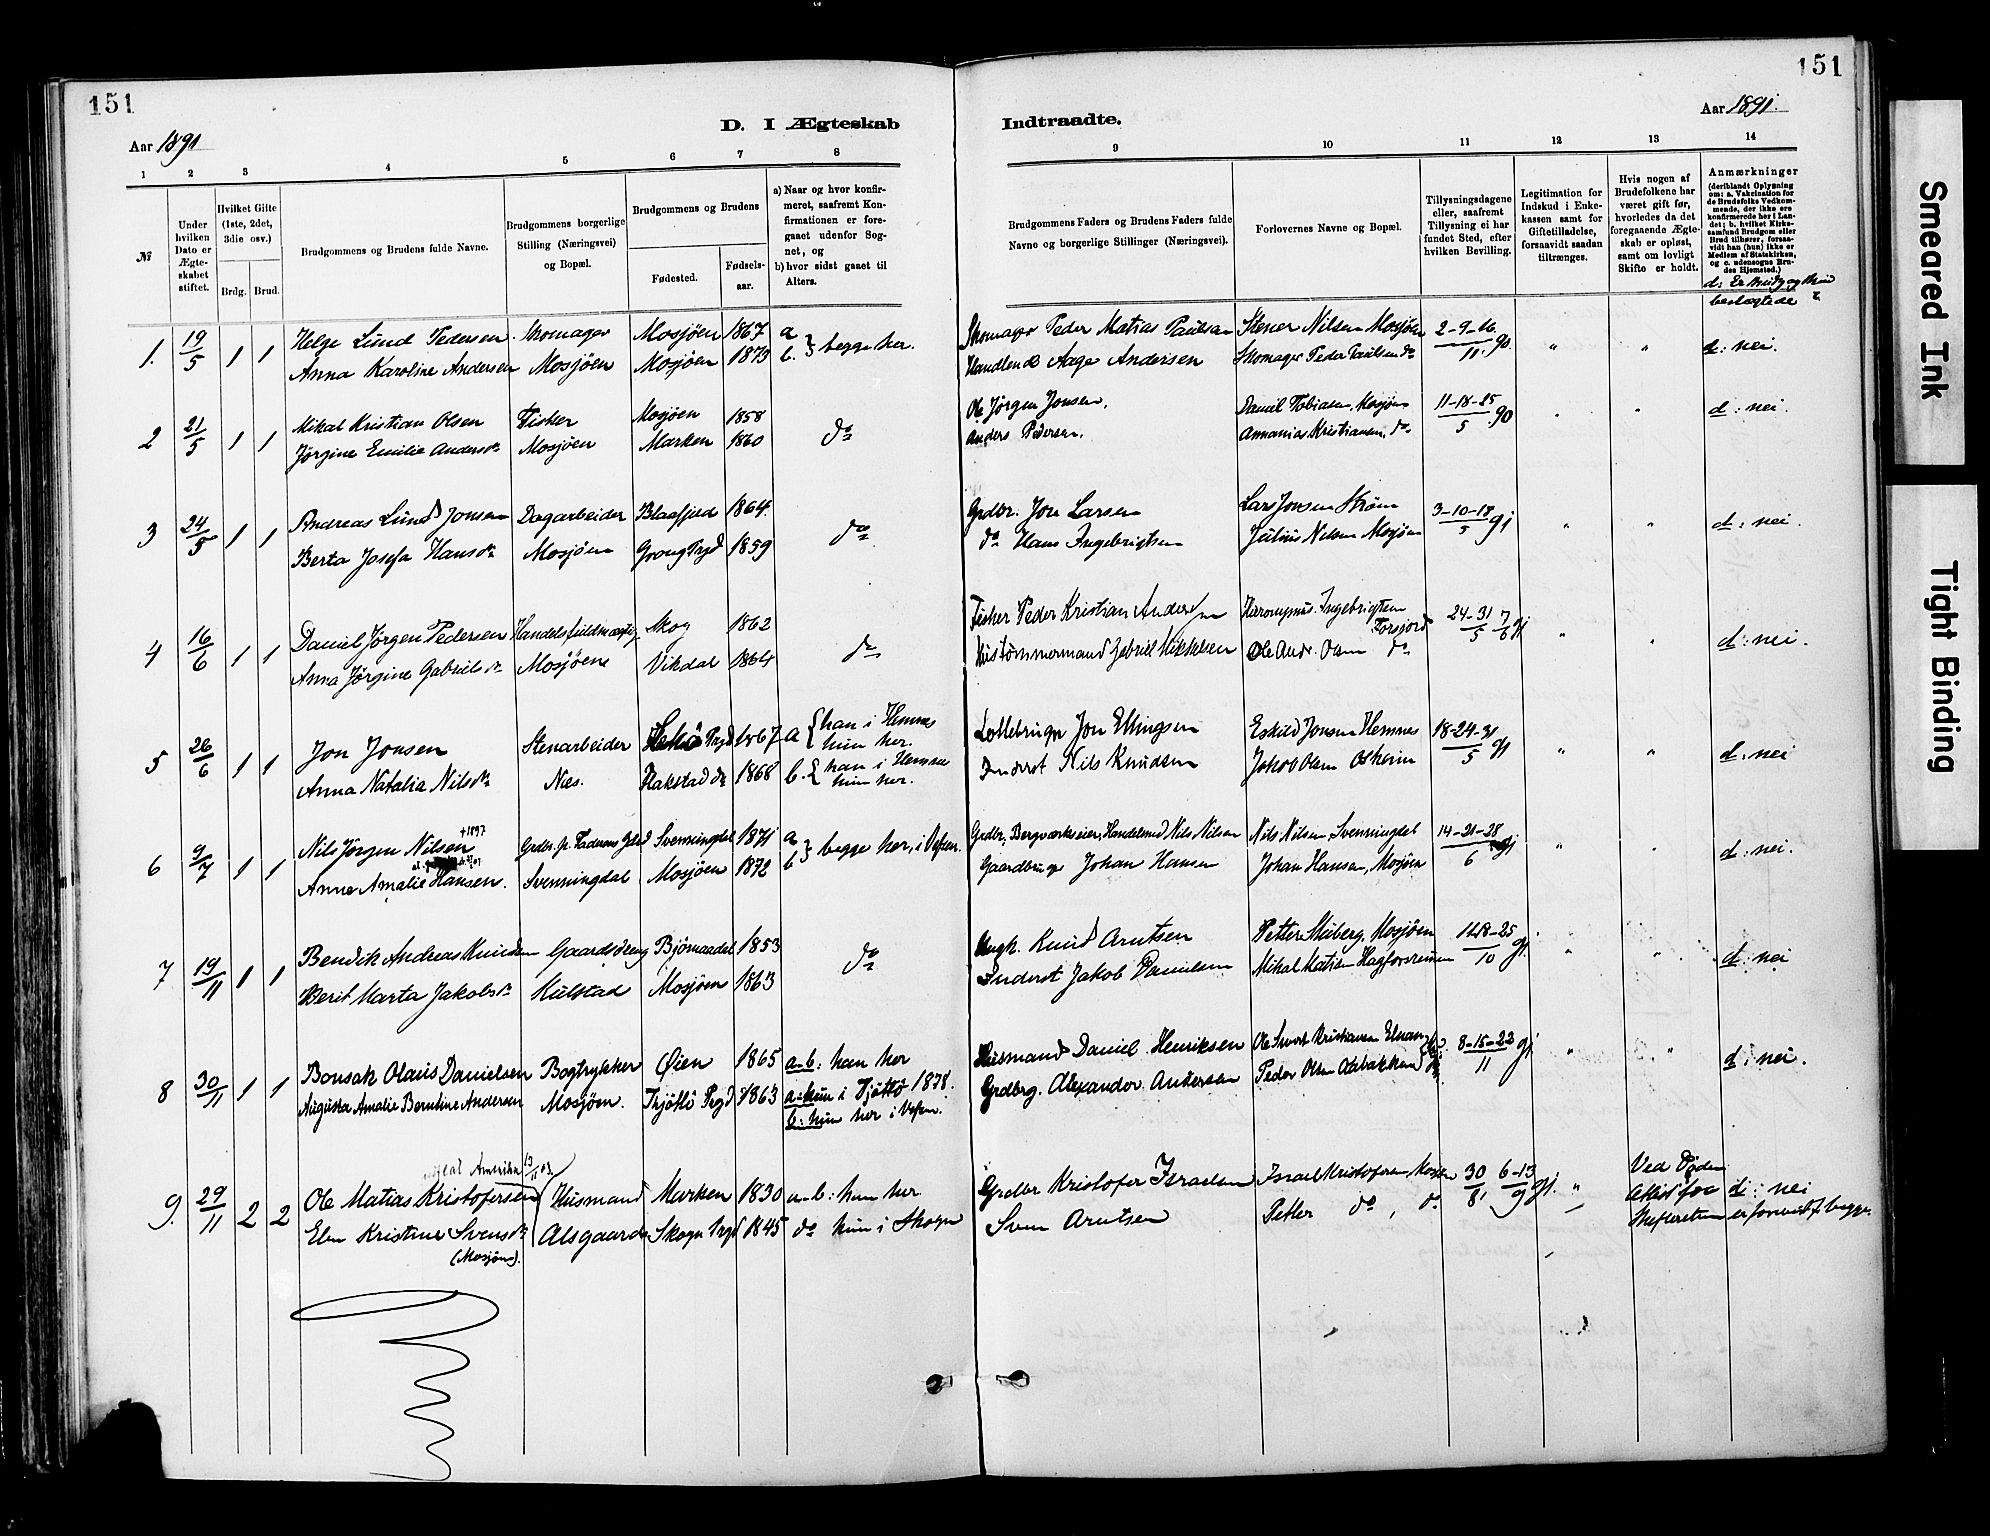 151
151
Aar 1891
D. I Ægteskab
Indtraadte.
Aar 1891.
1 2 3 4 5 6 7 8
9 10 11 12 13 14
No
Under hvilken Dato er Ægteskabet stiftet.
Hvilket Gifte (1ste, 2det, 3die osv.)
Brdg. Brud.
Brudgommens og Brudens fulde Navne.
Brudgommens borgerlige Stilling (Næringsvei) og Bopæl.
Brudgommens og Brudens
Fødested.
Fødselsaar.
a) Naar og hvor konfirmeret, saafremt Konfirmationen er foregaaet udenfor Sognet, og
b) hvor sidst gaaet til Alters.
Brudgommens Faders og Brudens Faders fulde Navne og borgerlige Stillinger (Næringsvei).
Forlovernes Navne og Bopæl.
Tillysningsdagene eller, saafremt Tillysning ei har fundet Sted, efter hvilken Bevilling.
Legitimation for Indskud i Enkekassen samt for Giftetilladelse, forsaavidt saadan tiltrænges.
Hvis nogen af Brudefolkene har været gift før, hvorledes da det foregaaende Ægteskab er opløst, samt om lovligt Skifte er holdt.
Anmærkninger
(deriblandt Oplysning om: a. Vakcination for de Brudefolks Vedkommende, der ikke ere konfirmerede her i Landet; b. hvilket Kirkesamfund Brudgom eller Brud tilhører, forsaavidt han (hun) ikke er Medlem af Statskirken, og c. udensogns Brudes Hjemsted.)
beslægtede?
1. 19/5 1 1 Helge Lund Pedersen Skomager Mosjöen 1867 a
Anna Karoline Andersen Mosjöen Mosjöen 1873 b. } begge her.
Skomager Peder Matias Paulsen Stener Nilsen Mosjöen 2-9-16
Handlende Aage Andersen Skomager Peder Paulsen do d: nei.
2 21/5 1 1 Mikal Kristian Olsen Fisker Mosjöen 1858
Jörgine Emilie Andersdr Mosjöen Marken 1860 do
Ole Jörgen Jonsen, Daniel Tobiasen, Mosjöen 11-18-25/5
Anders Pedersen. Ananias Kristiansen, do d: nei.
3 24/5 1 1 Andreas Lund Jonsen Dagarbeider Blaafjeld 1864.
Berta Josefa Hansdr Mosjöen Grong Prgd 1859 do
Grdbr. Jon Larsen Lars Jonsen 3-10-18/5 gj
do Hans Ingebrigtsen Julius Nilsen Mosjöen d: nei.
4 16/6 1 1 Daniel Jörgen Pedersen Handelsfuldmægtig Skog 1862
Anna Jörgine Gabrielsdr Mosjöen Vikdal 1864 do
Fisker Peder Kristian Andersen Hieronymus Ingebrigtsen Forsjord 24-31/5 7/6 gj
Hustömmermand Gabriel Mikkelsen Ole Andr. Olsen do d: nei.
5 26/6 1 1 Jon Jonsen Stenarbeider Prgd 1867 a { han i Hemnes
hun her.
Anna Natalia Nilsdr Nes. Hakstad do 1868 b. { han i Hemnes
hun her.
Jon Ellingsen Eskild Jonsen Hemnes 18-24-31/5 gj
Inderst Nils Knudsen Jakob Olsen d: nei
6 9/7 1 1 Nils Jörgen Nilsen +1897 Grdbr. p. Faderens Grd Svenningdal 1871 a
Anne Amalie Hansen. Svenningdal Mosjöen 1872 b } begge her, i Vefsen.
Grdbr., Bergværkseier, Handelsmd Nils Nilsen Nils Nilsen, Svenningdal 14-21-28/6 gj
Gaardbruger Johan Hansen Johan Hansen, Mosjöen d: nei.
7 19/11 1 1 Bendik Andreas Knudsen Gaardsdreng Björnaadal 1853
Berit Marta Jakobsdr Kulstad Mosjöen 1863 do
Ungk. Knud Arntsen Petter Mosjöen 11-18-25/10 gj.
Inderst Jakob Danielsen Mikal Matisen d: nei
8 30/11 1 1 Bonsak Olaus Danielsen Bogtrykker Øien 1865 a-b: han her
Augusta Amalie Berntine Andersen Mosjöen. Thjöttö Prgd 1863 a: hun i Tjöttö 1878.
b: hun her i Vefsen.
Husmand Daniel Henriksen Ole Kristiansen 8-15-22/11 gj
Grdbrg. Alexander Andersen Peder Olsen d: nei.
Amerika 13/11 03.
9. 29/11 2 2 Ole Matias Kristofersen Husmand Marken 1830 a-b: han her
Elen Kristine Svensdr Alsgaarden Skogn Prgd 1845 do hun i Skogn
(Mosjöen).
Grdbr Kristofer Israelsen Israel Kristofersen Mosjöen 30/8 6-13/9 gj.
Sven Arntsen Petter do, do
Ved Döden
Attest for d: nei
Skifteretten er forevist f. begge.
Smeared Ink
Tight Binding